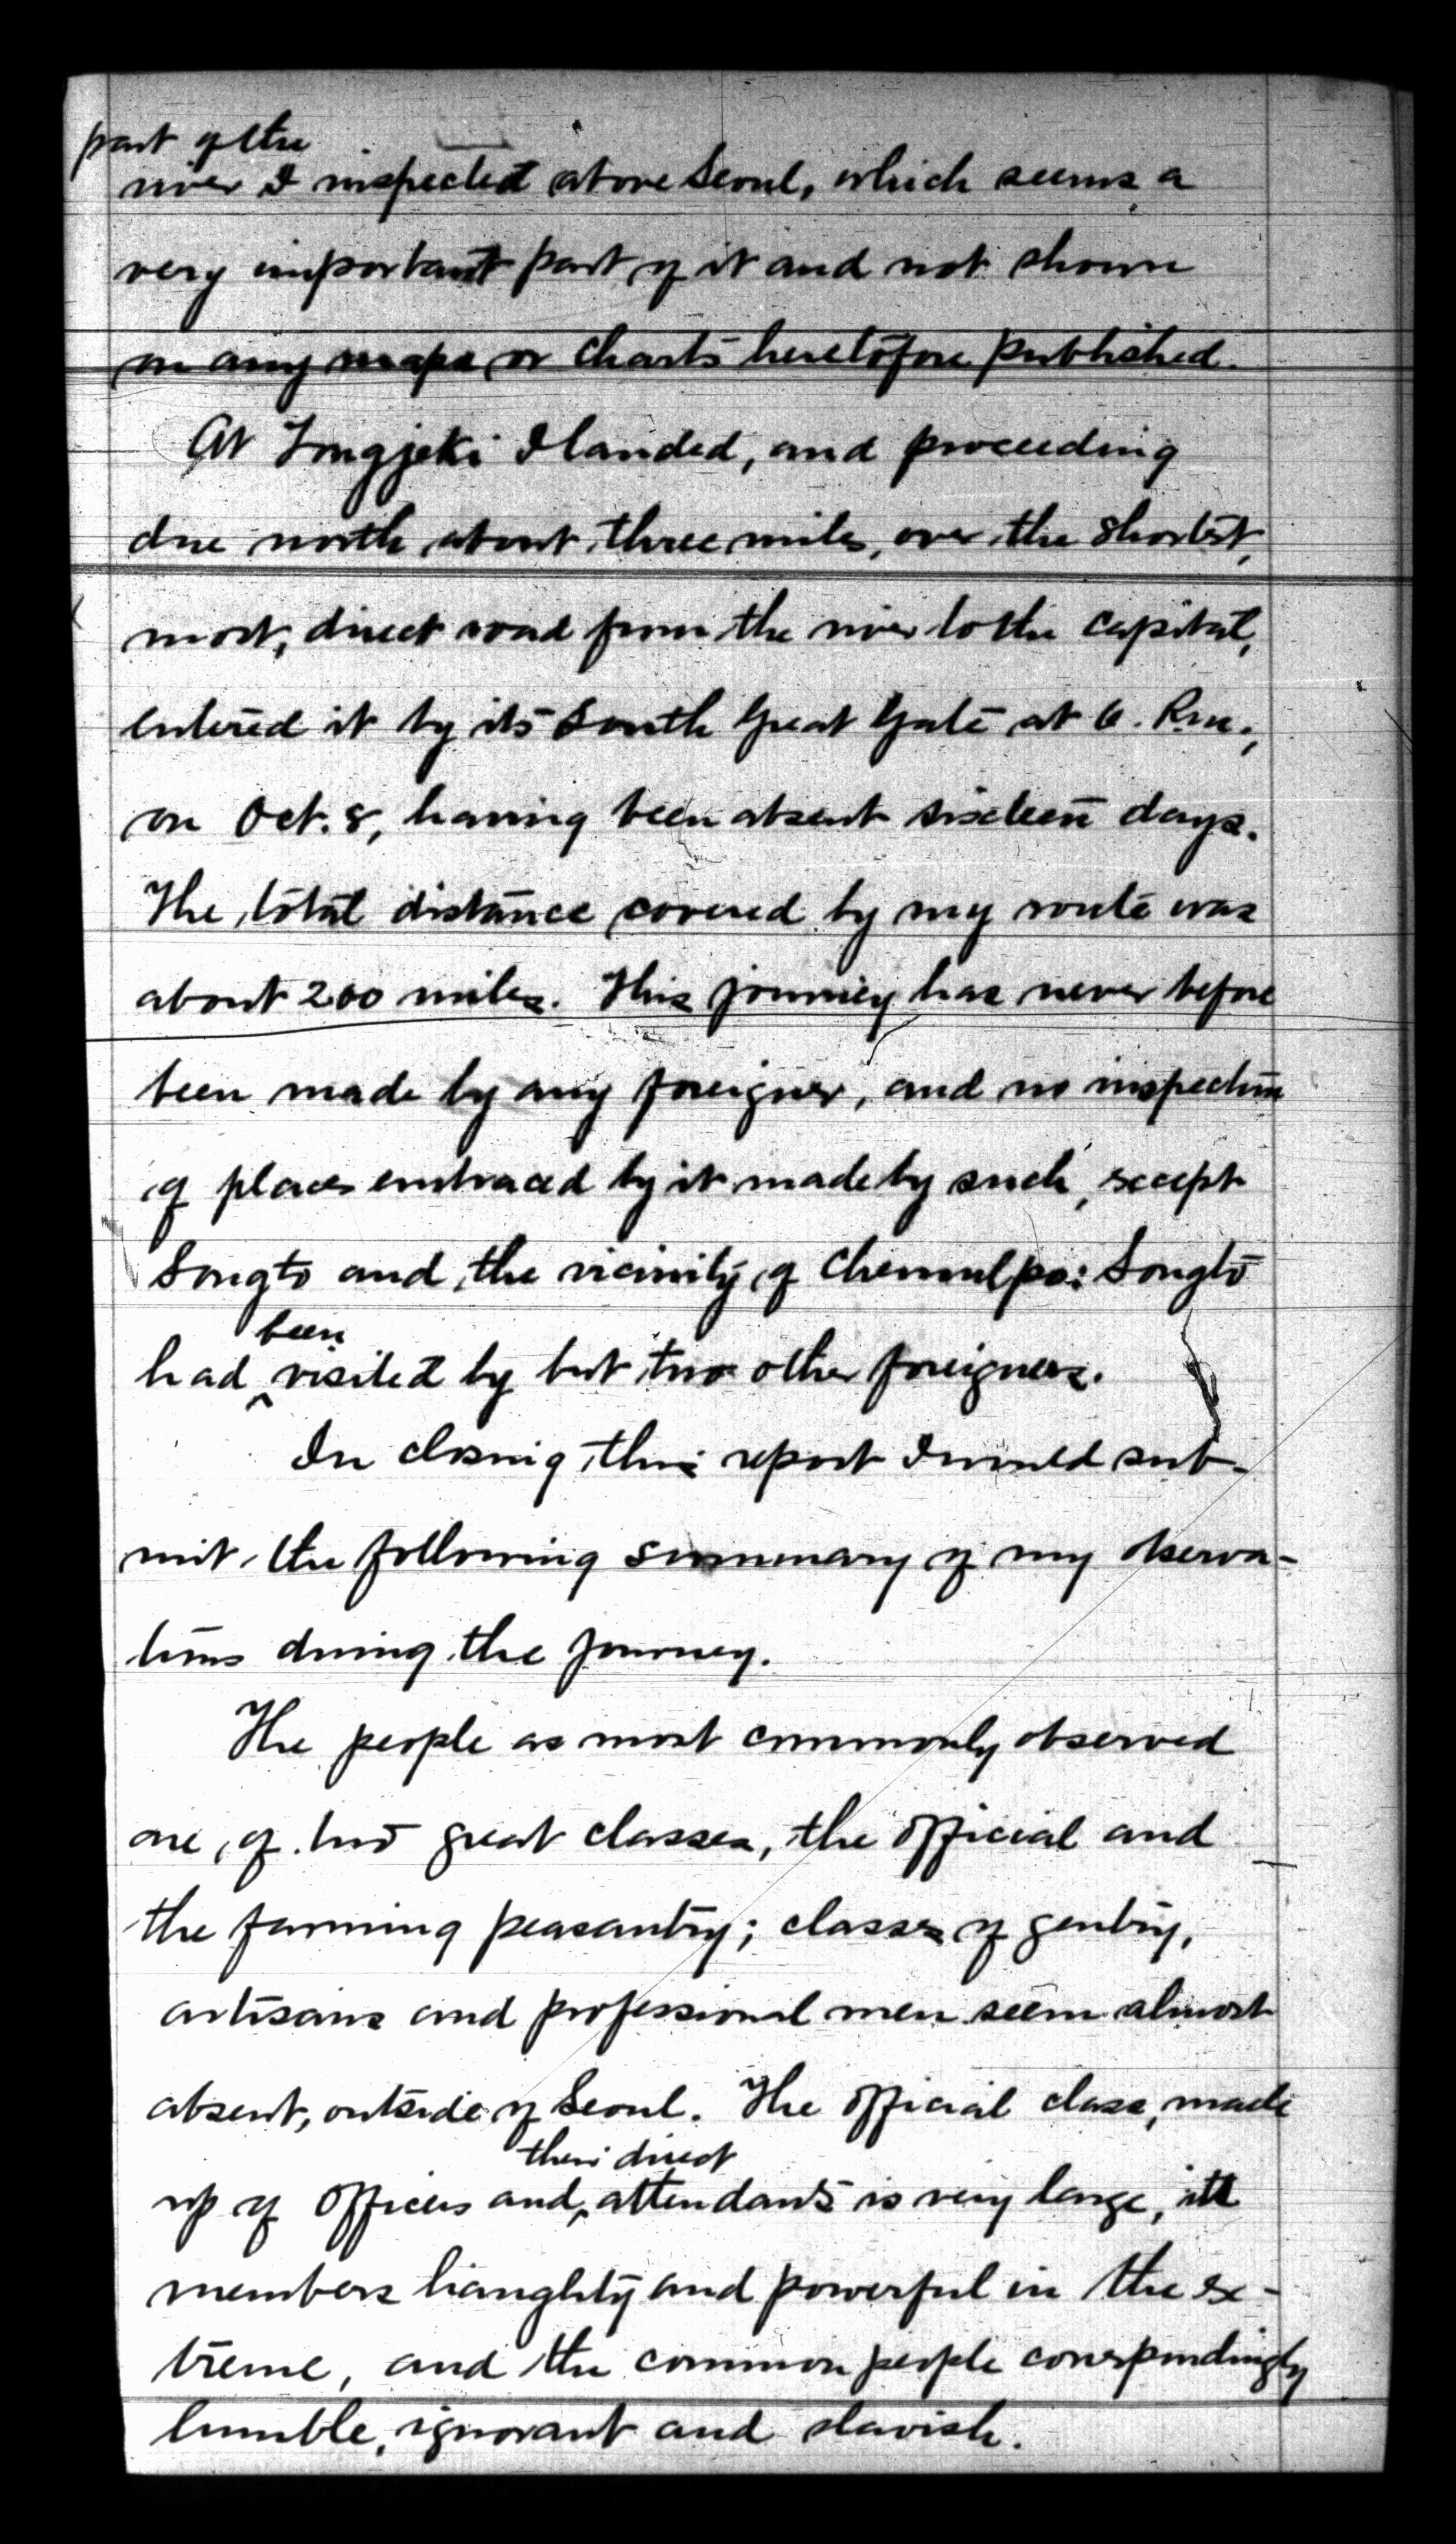 part of the
river I inspected above Seoul, which seems a
very important part of it and not shown
on any maps or charts heretofore published.
At Yongjeki I landed, and proceeding
due north about three miles, over the shortest,
most, direct road from the river to the capital,
entered it by its South Great Gate at 6. P.m.,
on Oct. 8, having been absent sixteen days.
The total distance covered by my route was
about 200 miles. This journey has never before
been made by any foreigner, and no inspection
of places embraced by it made by such, except
Songto and the vicinity of Chemulpo: Songto
been
had visited by but two other foreigners.
In closing this report I would sub-
mit the following summary of my observa-
tions during the journey.
The people as most commonly observed
are, of two great classes, the official and
the farming peasantry; classes of gentry,
artisans and professional men seem almost
absent, outside of Seoul. The official class, made
their direct
up of officers and attendants is very large, its
members haughty and powerful in the ex-
treme, and the common people correspondingly
humble, ignorant and slavish.